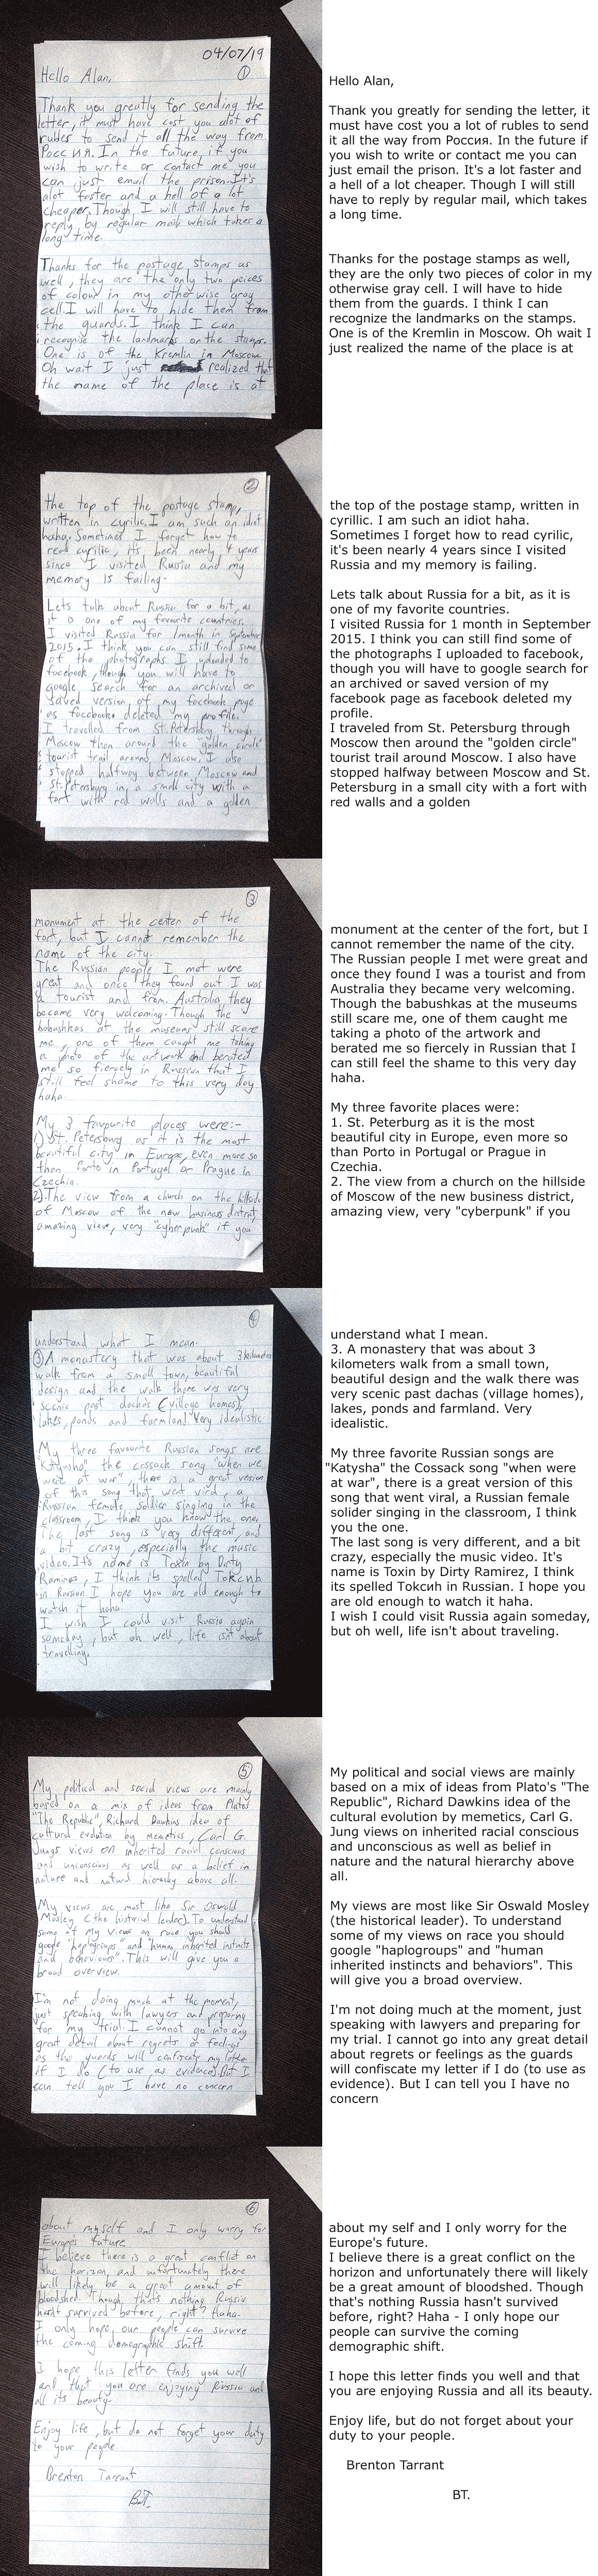 04/07/19
①
Hello Alan,
Thank you greatly for sending the
letter, it must have cost you alot of
rubles to send it all the way from
Росс ия. In the future if you
wish to write or contact me you
can just email the prison. It's
alot faster and a hell of a lot
cheaper. Though I will still have to
reply by regular mail which takes a
long time.
Thanks for the postage stamps as
well, they are the only two peices
of colour in my otherwise gray
cell. I will have to hide them from
the guards. I think I can
recognise the landmarks on the stamps.
One is of the Kremlin in Moscow.
Oh wait I just realized that
the name of the place is at
Hello Alan,
Thank you greatly for sending the letter, it
must have cost you a lot of rubles to send
it all the way from Россия. In the future if
you wish to write or contact me you can
just email the prison. It's a lot faster and
a hell of a lot cheaper. Though I will still
have to reply by regular mail, which takes
a long time.
Thanks for the postage stamps as well,
they are the only two pieces of color in my
otherwise gray cell. I will have to hide
them from the guards. I think I can
recognize the landmarks on the stamps.
One is of the Kremlin in Moscow. Oh wait I
just realized the name of the place is at
②
the top of the postage stamp,
written in cyrilic. I am such an idiot
haha. Sometimes I forget how to
read cyrilic, it's been nearly 4 years
since I visited Russia and my
memory is failing.
Lets talk about Russia for a bit, as
it is one of my favourite countries.
I visited Russia for 1 month in September
2015. I think you can still find some
of the photographs I uploaded to
facebook, though you will have to
google search for an archived or
saved version of my facebook page
as facebook deleted my profile.
I travelled from St. Petersburg through
Moscow then around the "golden circle"
tourist trail around Moscow. I also
stopped halfway between Moscow and
St. Petersburg in a small city with a
fort with red walls and a golden
the top of the postage stamp, written in
cyrillic. I am such an idiot haha.
Sometimes I forget how to read cyrilic,
it's been nearly 4 years since I visited
Russia and my memory is failing.
Lets talk about Russia for a bit, as it is
one of my favorite countries.
I visited Russia for 1 month in September
2015. I think you can still find some of
the photographs I uploaded to facebook,
though you will have to google search for
an archived or saved version of my
facebook page as facebook deleted my
profile.
I traveled from St. Petersburg through
Moscow then around the "golden circle"
tourist trail around Moscow. I also have
stopped halfway between Moscow and St.
Petersburg in a small city with a fort with
red walls and a golden
③
monument at the center of the
fort, but I cannot remember the
name of the city.
The Russian people I met were
great and once they found out I was
a tourist and from Australia, they
became very welcoming. Though the
babushkas at the museums still scare
me, one of them caught me taking
a photo of the artwork and berated
me so fiercely in Russian that I
still feel shame to this very day
haha.
My 3 favourite places were:-
1) St. Petersburg as it is the most
beautiful city in Europe, even more so
than Porto in Portugal or Prague in
Czechia.
2). The view from a church on the hillside
of Moscow of the new business district,
amazing view, very "cyberpunk" if you
monument at the center of the fort, but I
cannot remember the name of the city.
The Russian people I met were great and
once they found I was a tourist and from
Australia they became very welcoming.
Though the babushkas at the museums
still scare me, one of them caught me
taking a photo of the artwork and
berated me so fiercely in Russian that I
can still feel the shame to this very day
haha.
My three favorite places were:
1. St. Peterburg as it is the most
beautiful city in Europe, even more so
than Porto in Portugal or Prague in
Czechia.
2. The view from a church on the hillside
of Moscow of the new business district,
amazing view, very "cyberpunk" if you
④
understand what I mean.
③ A monastery that was about 3 kilometres
walk from a small town, beautiful
design and the walk there was very
scenic past dachas (village homes),
lakes, ponds and farmland. Very idealistic
My three favourite Russian songs are
"Katyusha" the cossack song "when we
were at war", there is a great version
of this song that went viral, a
Russian female soldier singing in the
classroom, I think you know the one.
The last song is very different, and
a bit crazy, especially the music
video. It's name is Toxin by Dirty
Ramirez, I think its spelled Токсинь
in Russian. I hope you are old enough to
watch it haha.
I wish I could visit Russia again
someday, but oh well, life isn't about
travelling.
understand what I mean.
3. A monastery that was about 3
kilometers walk from a small town,
beautiful design and the walk there was
very scenic past dachas (village homes),
lakes, ponds and farmland. Very
idealistic.
My three favorite Russian songs are
"Katysha" the Cossack song "when were
at war", there is a great version of this
song that went viral, a Russian female
solider singing in the classroom, I think
you the one.
The last song is very different, and a bit
crazy, especially the music video. It's
name is Toxin by Dirty Ramirez, I think
its spelled Токсиn in Russian. I hope you
are old enough to watch it haha.
I wish I could visit Russia again someday,
but oh well, life isn't about traveling.
⑤
My political and social views are mainly
based on a mix of ideas from Platos
"The Republic", Richard Dawkins idea of
cultural evolution by memetics, Carl G.
Jungs views on inherited racial conscious
and unconscious as well as a belief in
nature and natural hierachy above all.
My views are most like Sir Oswald
Mosley (the historical leader). To understand
some of my views on race you should
google "haplogroups" and "human inherited instincts
and behaviours". This will give you a
broad overview.
I'm not doing much at the moment,
just speaking with lawyers and preparing
for my trial. I cannot go into any
great detail about regrets or feelings
as the guards will confiscate my letter
if I do (to use as evidence). But I
can tell you I have no concern
My political and social views are mainly
based on a mix of ideas from Plato's "The
Republic", Richard Dawkins idea of the
cultural evolution by memetics, Carl G.
Jung views on inherited racial conscious
and unconscious as well as belief in
nature and the natural hierarchy above
all.
My views are most like Sir Oswald Mosley
(the historical leader). To understand
some of my views on race you should
google "haplogroups" and "human
inherited instincts and behaviors". This
will give you a broad overview.
I'm not doing much at the moment, just
speaking with lawyers and preparing for
my trial. I cannot go into any great detail
about regrets or feelings as the guards
will confiscate my letter if I do (to use as
evidence). But I can tell you I have no
concern
⑥
about myself and I only worry for
Europe's future.
I believe there is a great conflict on
the horizon, and unfortunately there
will likely be a great amount of
bloodshed. Though, that's nothing Russia
hasnt survived before, right? Haha-
I only hope our people can survive
the coming demographic shift.
I hope this letter finds you well
and that you are enjoying Russia and
all its beauty.
Enjoy life, but do not forget your duty
to your people.
Brenton Tarrant
B.T.
about my self and I only worry for the
Europe's future.
I believe there is a great conflict on the
horizon and unfortunately there will likely
be a great amount of bloodshed. Though
that's nothing Russia hasn't survived
before, right? Haha - I only hope our
people can survive the coming
demographic shift.
I hope this letter finds you well and that
you are enjoying Russia and all its beauty.
Enjoy life, but do not forget about your
duty to your people.
Brenton Tarrant
BT.